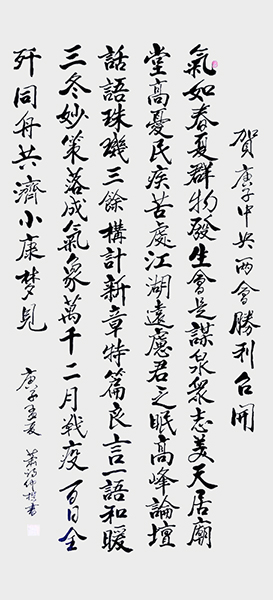 賀庚子中共兩會勝利召開
氣如春夏群物發生會是謀泉眾志美天居廟
堂高憂民疾苦處江湖遠慮君之眠高峰論壇
話語珠璣三餘構計新章特篇良言一語和暖
三冬妙策落成氣象萬千二月戰疫百日全
歼同舟共濟小康梦見
庚子孟夏
書